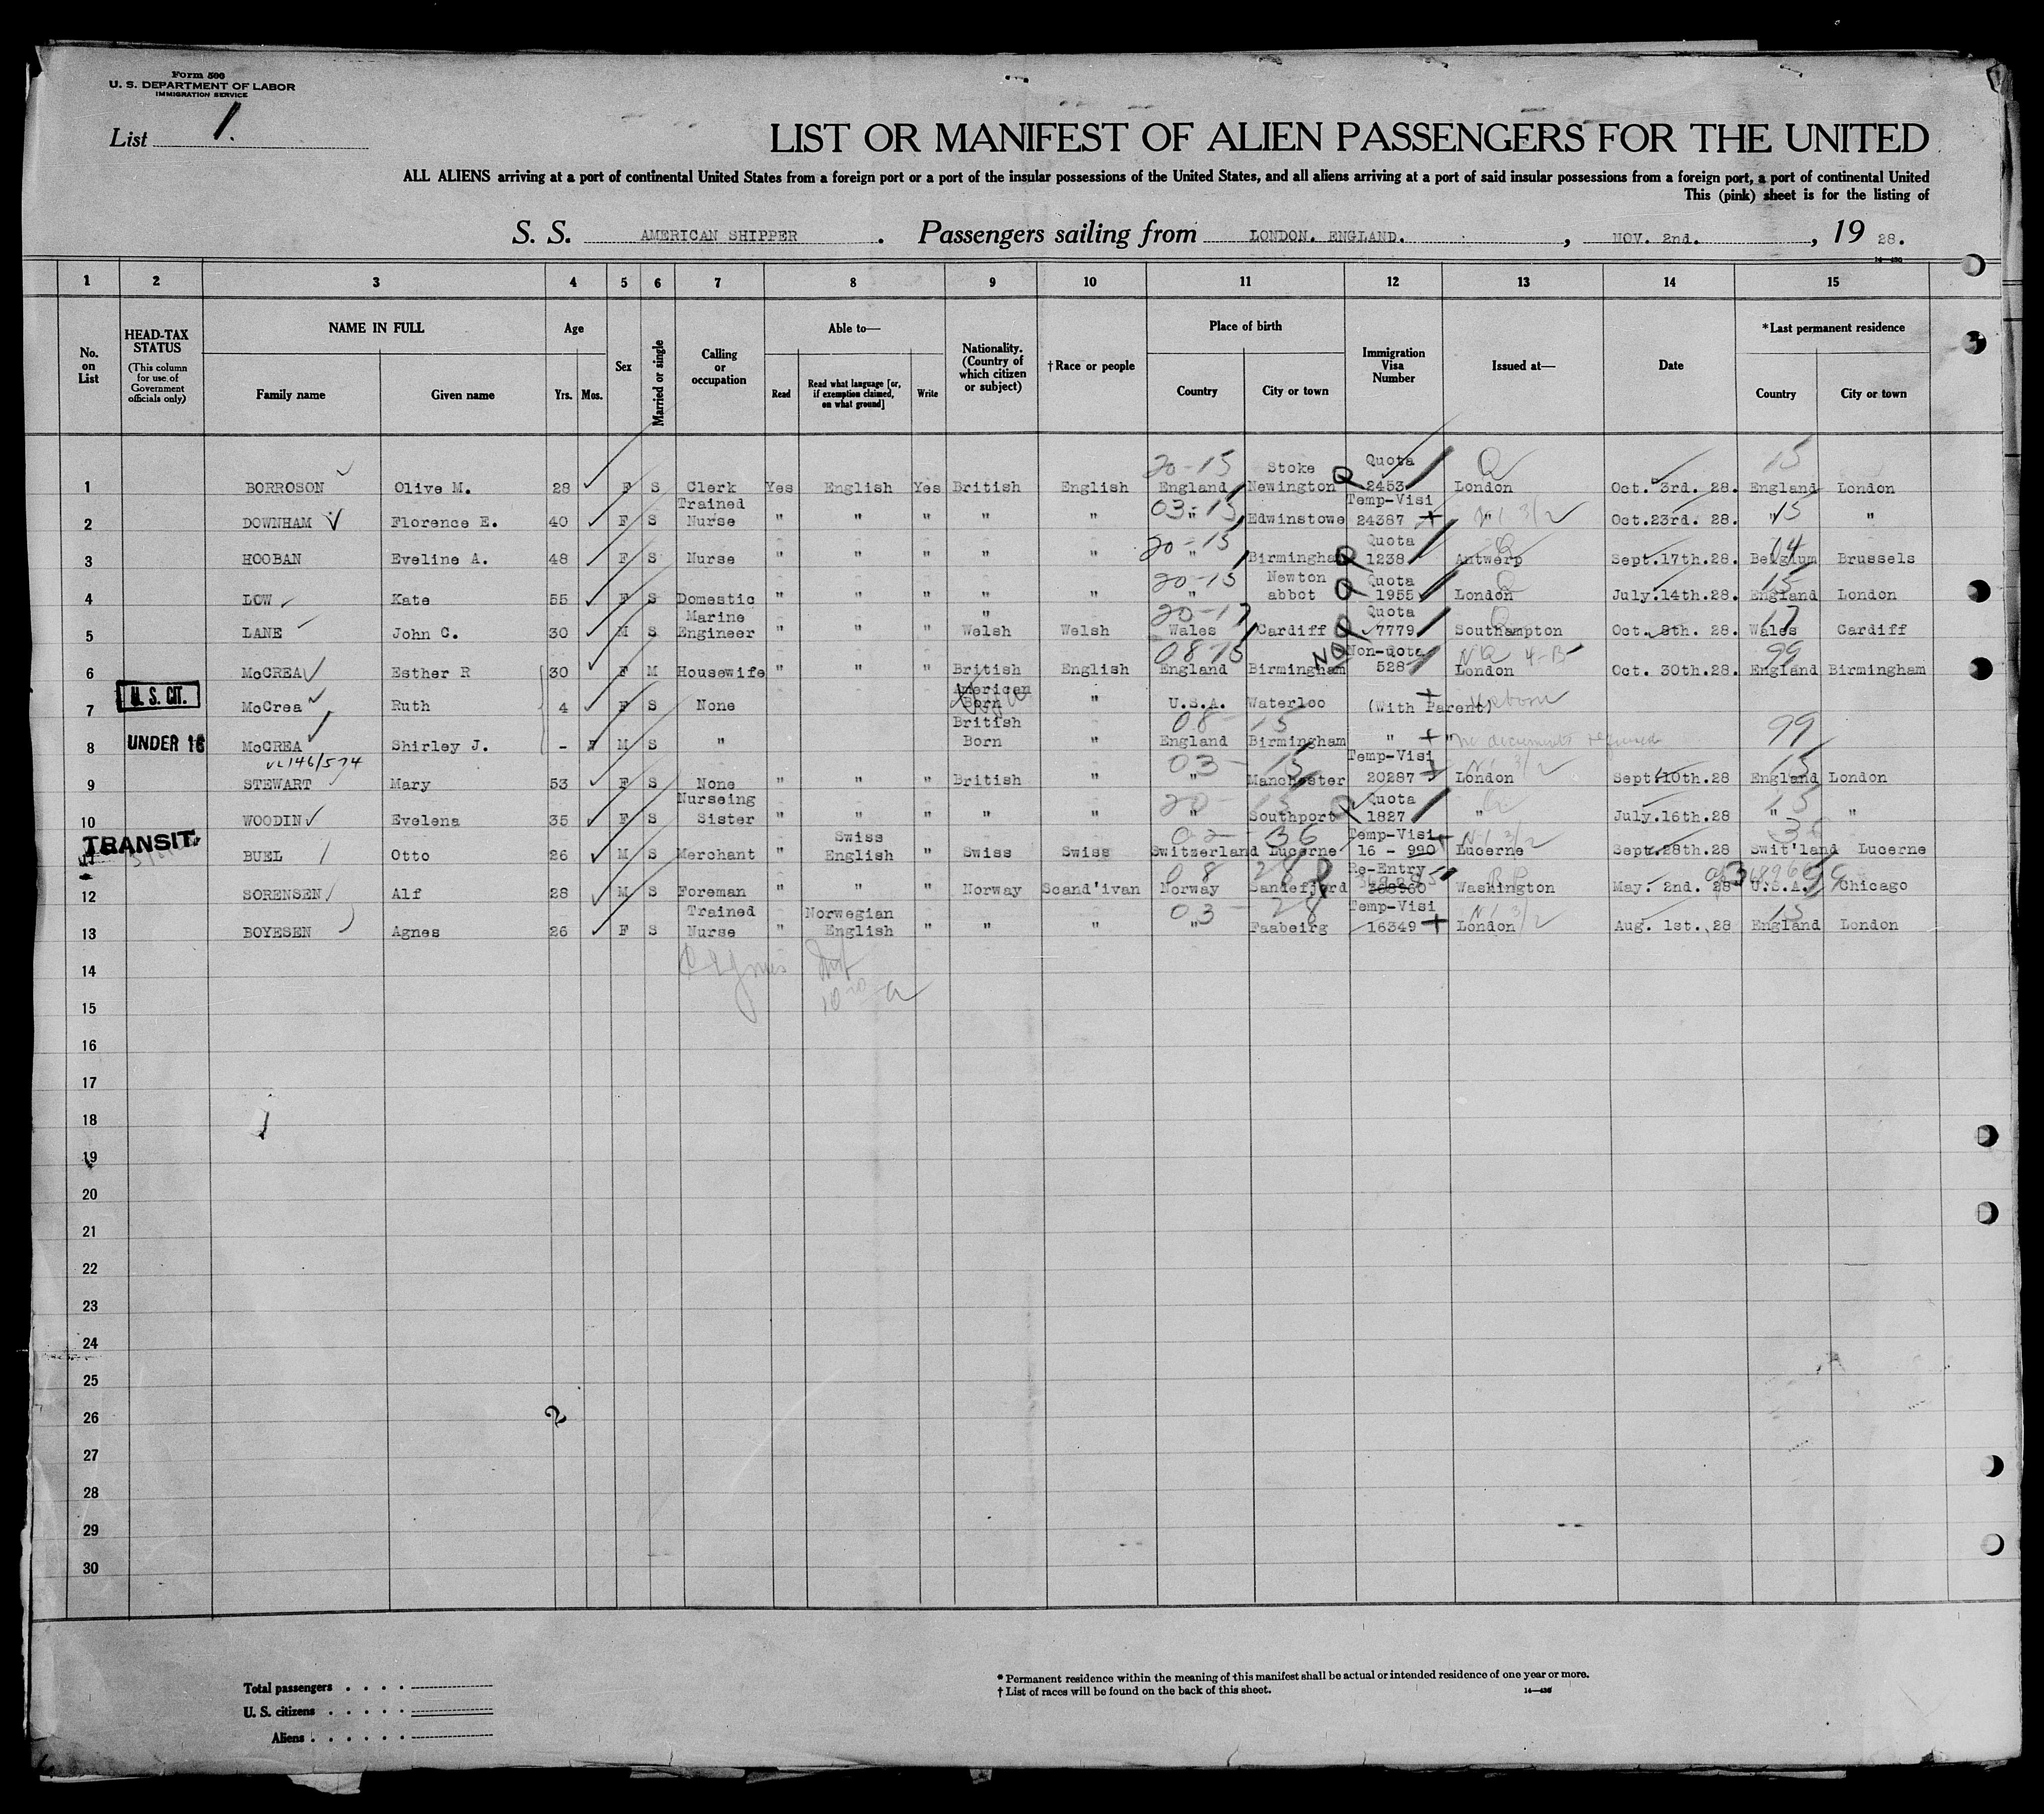 Form 500
U. S. DEPARTMENT OF LABOR
IMMIGRATION SERVICE
List 1.
LIST OR MANIFEST OF ALIEN PASSENGERS FOR THE UNITED
ALL ALIENS arriving at a port of continental United States from a foreign port or a port of the insular possessions of the United States, and all aliens arriving at a port of said insular possessions from a foreign port, a port of continental United
This (pink) sheet is for the listing of
S. S. AMERICAN SHIPPER. Passengers sailing from LONDON. ENGLAND., NOV. 2nd., 19 28.
1 2 3 4 5 6 7 8 9 10 11 12 13 14 15
No. on List
HEAD-TAX STATUS (This column for use of Government officials only)
NAME IN FULL Family name Given name
Age Yrs. Mos.
Sex
Married or single
Calling or occupation
Able to— Read Read what language [or, if exemption claimed, on what ground] Write
Nationality. (Country of which citizen or subject)
†Race or people
Place of birth Country City or town
Immigration Visa Number
Issued at—
Date
*Last permanent residence Country City or town
20-15 Stoke Quota Q 15
1 BORROSON Olive M. 28 F S Clerk Yes English Yes British English England Newington Q 2453 London Oct. 3rd. 28. England London
Trained 03-15 Temp-Visi
2 DOWNHAM Florence E. 40 F S Nurse " " " " " " Edwinstowe 24387 " 3/2 Oct.23rd. 28. " 15 "
20-15 Quota Q 04
3 HOOBAN Eveline A. 48 F S Nurse " " " " " " Birmingham Q 1238 Antwerp Sept.17th.28. Belgium Brussels
20-15 Newton Quota Q 15
4 LOW Kate 55 F S Domestic " " " " " " abbot Q 1955 London July.14th.28. England London
Marine " 20-17 Quota Q 17
5 LANE John C. 30 M S Engineer " " " Welsh Welsh Wales Cardiff Q 7779 Southampton Oct. 8th. 28. Wales Cardiff
08-15 Non-uota NQ 4-B 99
6 McCREA Esther R 30 F M Housewife " " " British English England Birmingham NQ 528 London Oct. 30th.28. England Birmingham
U. S. CIT. American
7 McCrea Ruth 4 F S None Born " U.S.A. Waterloo (With Parent)
British 08 - 15 99
UNDER 16 8 McCREA Shirley J. - M S " Born " England Birmingham " " no documents
Temp-Visi 03 - 15 3/2 15
9 STEWART Mary 53 F S None " " " British " " Manchester 20287 London Sept.10th.28 England London
Nurseing 20 - 15 Quota 15
10 WOODIN Evelena 35 F S Sister " " " " " " Southport Q 1827 " July.16th.28 " "
TRANSIT. Swiss 02 - 36 Temp-Visi 3/2
11 BUEL Otto 26 M S Merchant " English " Swiss Swiss Switzerland Lucerne 16 - 990 Lucerne Sept.28th.28 Swit'land Lucerne
08 28 Re-Entry 99
12 SORENSEN Alf 28 M S Foreman " " " Norway Scand'ivan Norway Sandefjord Washington May. 2nd. 28 U.S.A. Chicago
Trained Norwegian 03 - 28 Temp-Visi 3/2 15
13 BOYESEN Agnes 26 F S Nurse " English " " " " Faabeirg 16349 London Aug. 1st. 28 England London
14
15
16
17
18
19
20
21
22
23
24
25
26
27
28
29
30
Total passengers
U. S. citizens
Aliens
* Permanent residence within the meaning of this manifest shall be actual or intended residence of one year or more.
† List of races will be found on the back of this sheet.